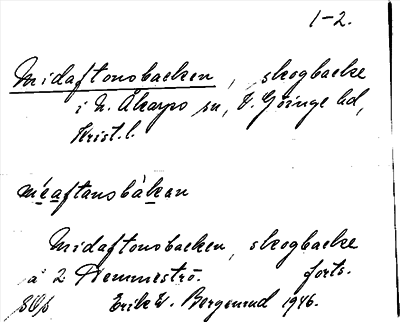 1-2.
Midaftonsbacken, skogbacke
i N. Åkarps sn, V. Göinge hd,
Krist. l.
méaftansbákan
Midaftonsbacken, skogbacke
å 2 Hemmeströ. forts.
Erik W. Bergenrud 1946.